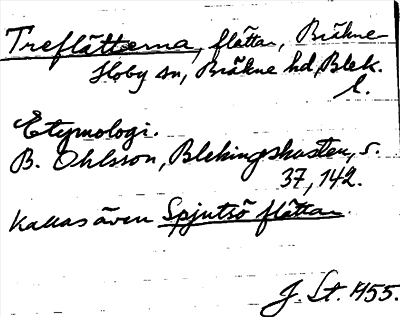 Treflätterna, flättar, Bräkne-
Hoby sn, Bräkne hd, Blek.
l.
Etymologi.
B. Ohlsson, Blekingskusten, s.
37, 142.
Kallas även Spjutsö flättar.
J. St. 455.